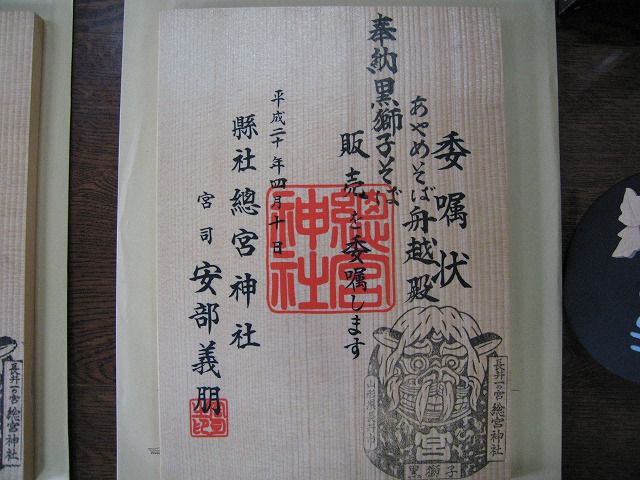 委嘱状
あやめそば舟越殿
奉納黒獅子そば
販売を委嘱します
平成二十年四月十日
縣社總宮神社
宮司 安部義朋
總宮神社
長井一の宮 總宮神社
黒獅子
長井一の宮 總宮神社